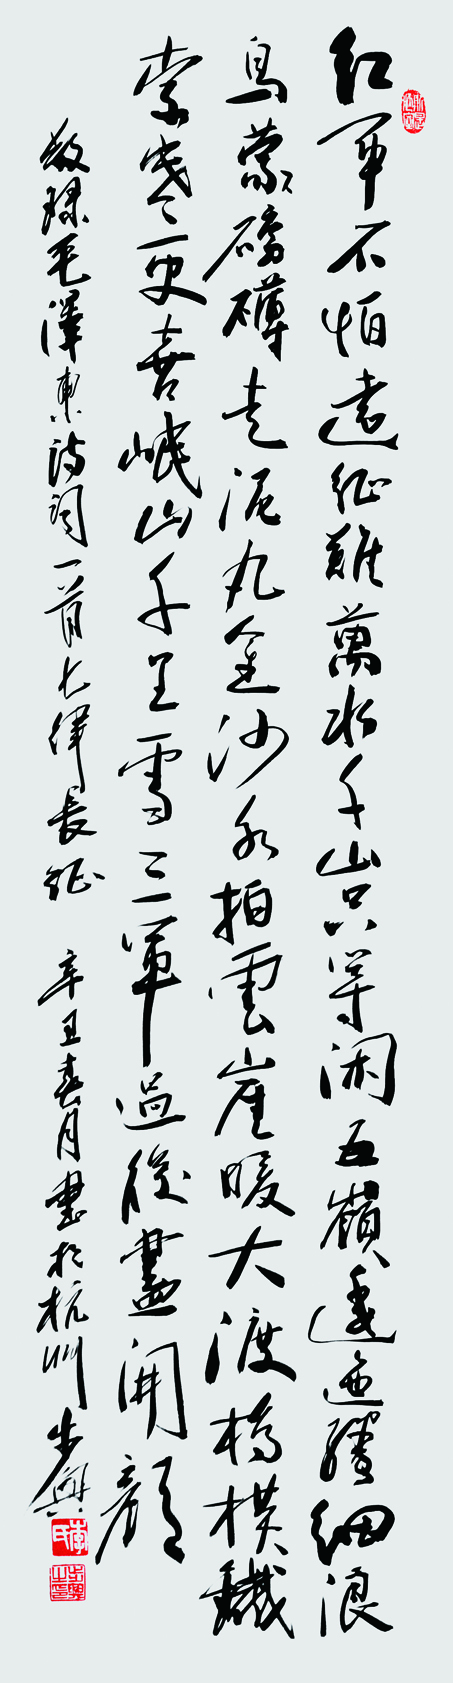 红军不怕遠征难萬水千山只等闲五嶺逶迤腾细浪
烏蒙磅礴走泥丸金沙水拍雲崖暖大渡橋横鐵
索寒更喜岷山千里雪三軍過後盡開顔
敬録毛澤東诗词一首七律長征 辛丑春月書於杭州 步興